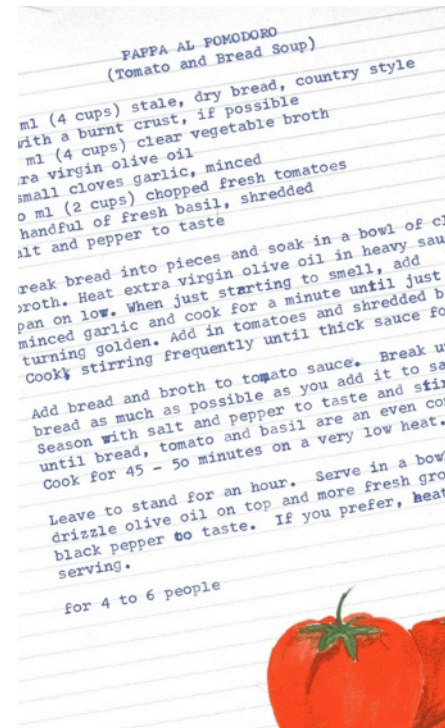 PAPPA AL POMODORO
(Tomato and Bread Soup)
ml (4 cups) stale, dry bread, country style
with a burnt crust, if possible
ml (4 cups) clear vegetable broth
virgin olive oil
small cloves garlic, minced
ml (2 cups) chopped fresh tomatoes
handful of fresh basil, shredded
salt and pepper to taste
break bread into pieces and soak in a bowl of
broth. Heat extra virgin olive oil in heavy
pan on low. When just starting to smell, add
minced garlic and cook for a minute until just
turning golden. Add in tomatoes and shredded
Cook, stirring frequently until thick sauce
Add bread and broth to tomato sauce. Break
bread as much as possible as you add it to
Season with salt and pepper to taste and
until bread, tomato and basil are an even
Cook for 45 - 50 minutes on a very low heat.
Leave to stand for an hour. Serve in a
drizzle olive oil on top and more fresh
black pepper to taste. If you prefer, heat
serving.
for 4 to 6 people